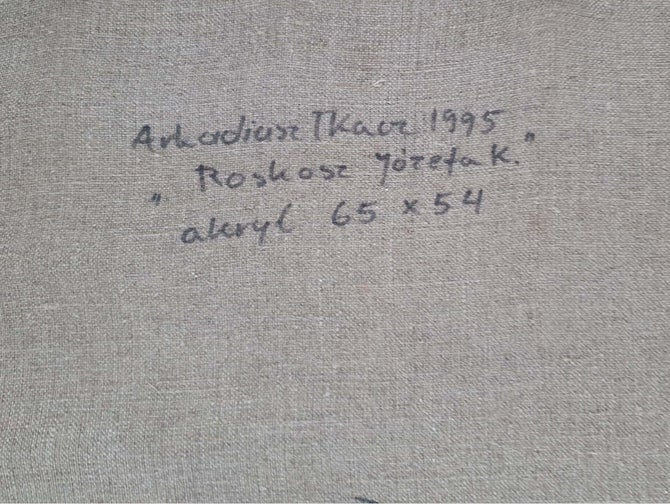 Arkadiusz Tkacz 1995
„ Roskosz Józefa K."
akryl 65 x 54